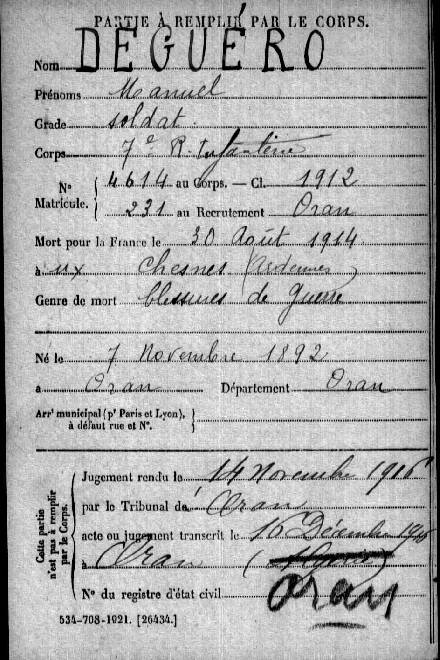 PARTIE À REMPLIR PAR LE CORPS.
Nom DEGUERO
Prénoms Manuel
Grade soldat
Corps 7e R. Infanterie
No Matricule. 4614 au Corps. — Cl. 1912
231 au Recrutement Oran
Mort pour la France le 30 Août 1914
à aux Chesnes (Ardennes)
Genre de mort blessures de guerre
Né le 7 Novembre 1892
à Oran Département Oran
Arrt municipal (pr Paris et Lyon), à défaut rue et No.
Cette partie n'est pas à remplir par le Corps.
Jugement rendu le 14 Novembre 1916
par le Tribunal de Oran
acte ou jugement transcrit le 16 Décembre 1916
à Oran
Oran
No du registre d'état civil
534-708-1921. [26434.]